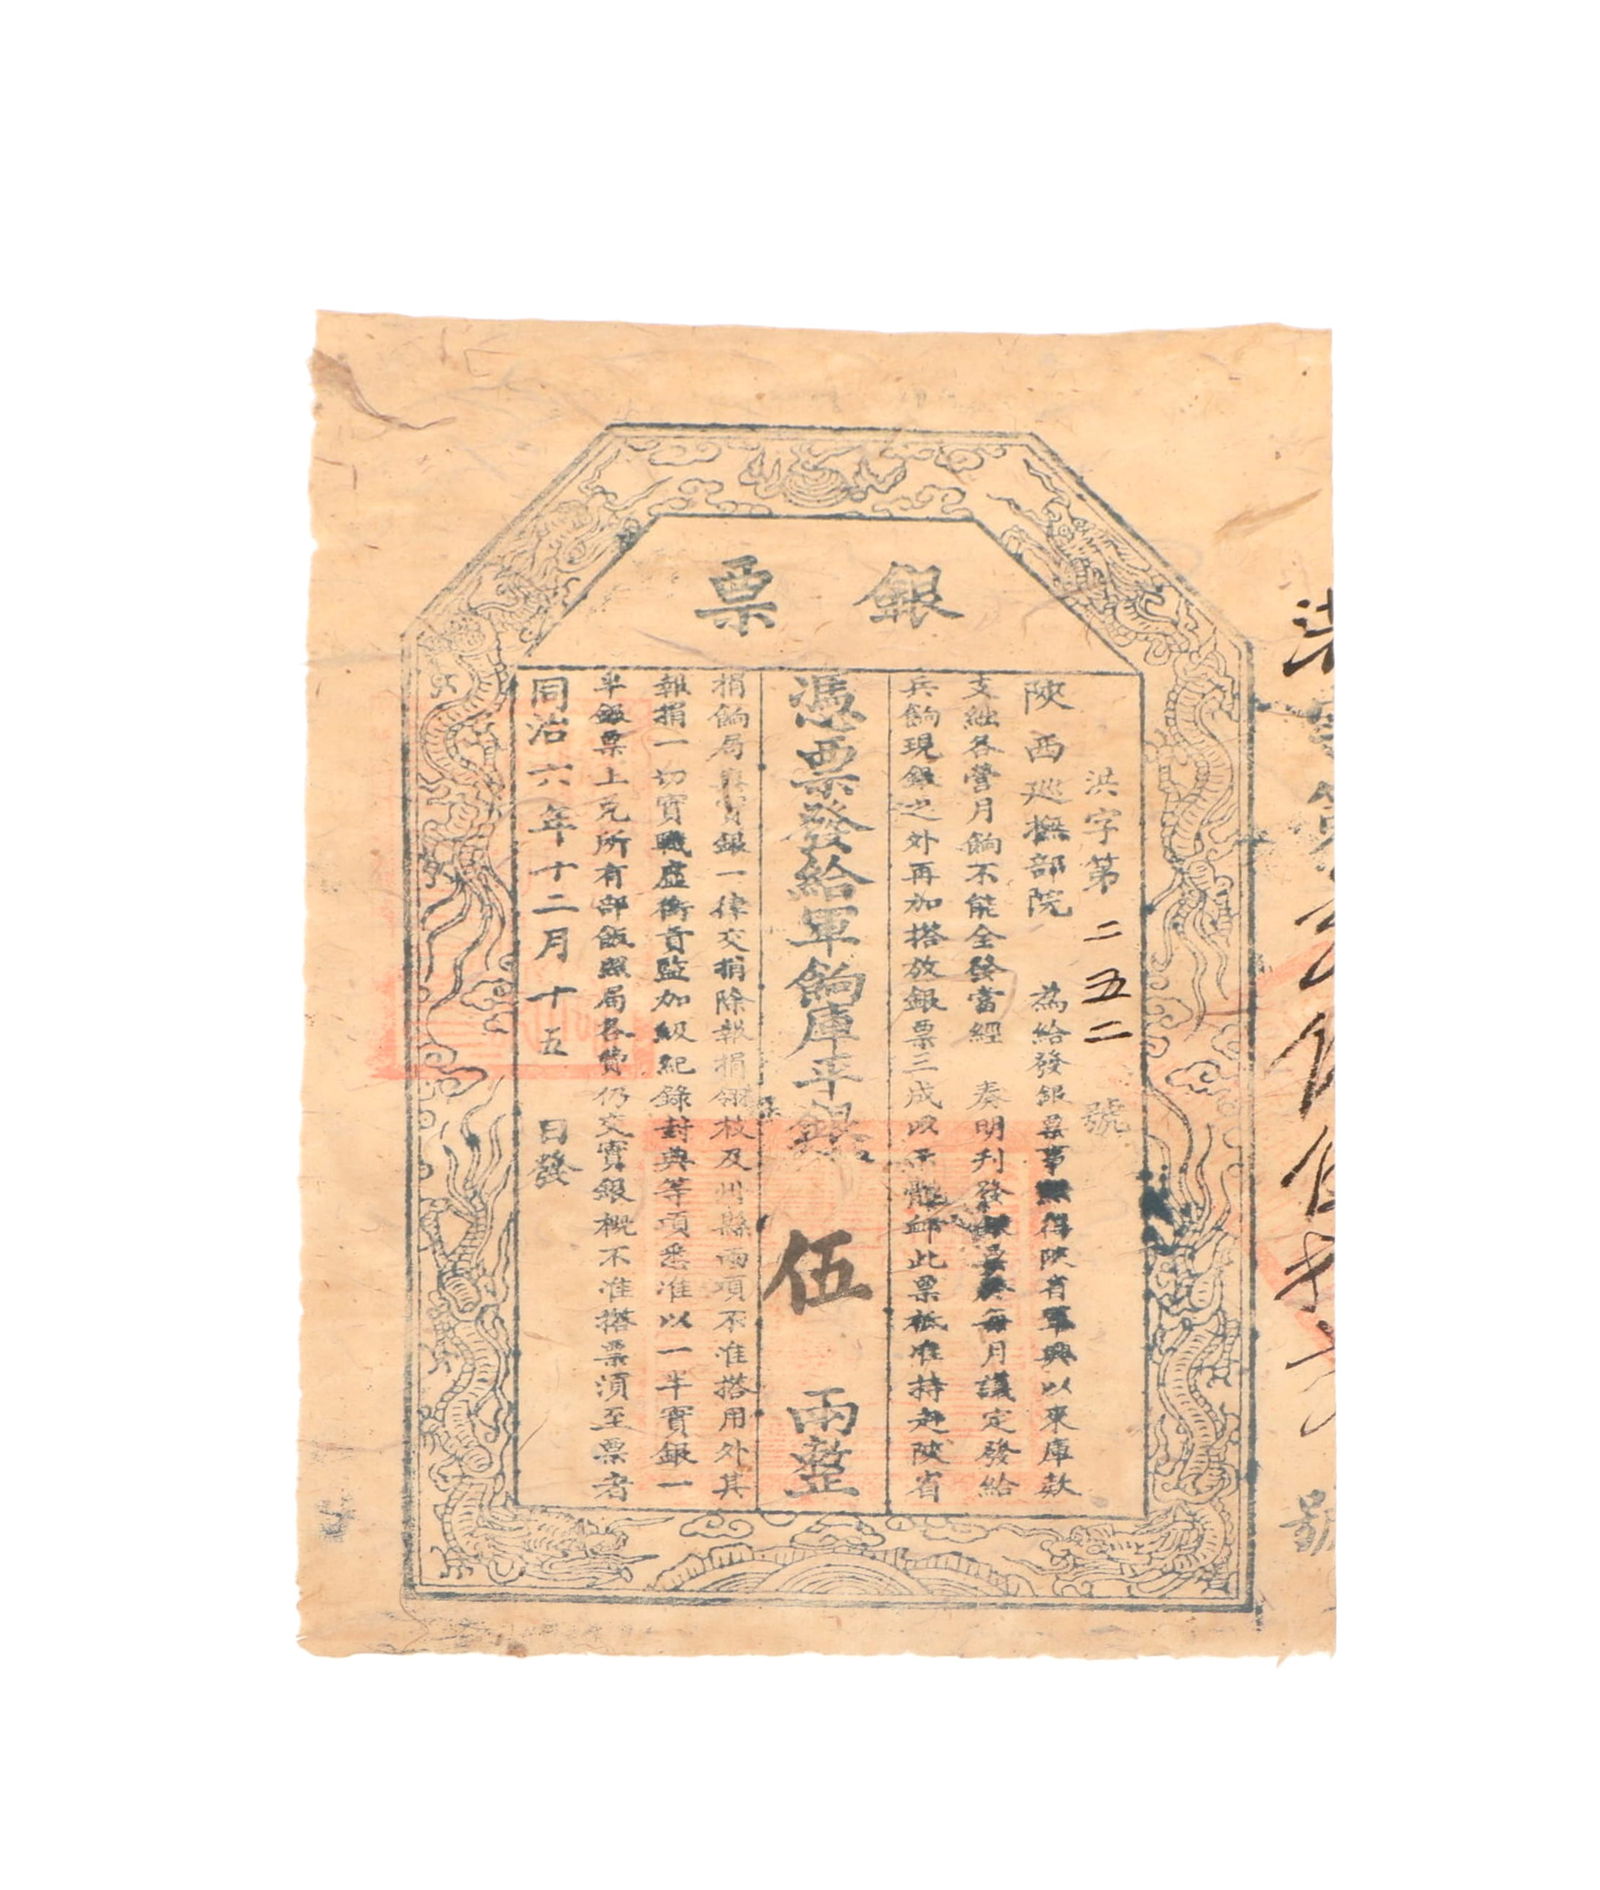 銀票
洪字第二五二號
陝西巡撫部院 為給發銀票事照得陝省軍興以來庫款
支絀各營月餉不能全發當經 奏明刊發銀票每月議定發給
兵餉現銀之外再加搭放銀票三成以示體卹此票祗准持赴陝省
憑票發給軍餉庫平銀 伍 兩整
捐餉局與實銀一律交捐除報捐翎枝及州縣兩項不准搭用外其
報捐一切實職虛銜貢監加級紀錄封典等項悉准以一半實銀一
半銀票上兌所有部飯照局各費仍交實銀概不准搭票須至票者
同治六年十二月十五日發
號